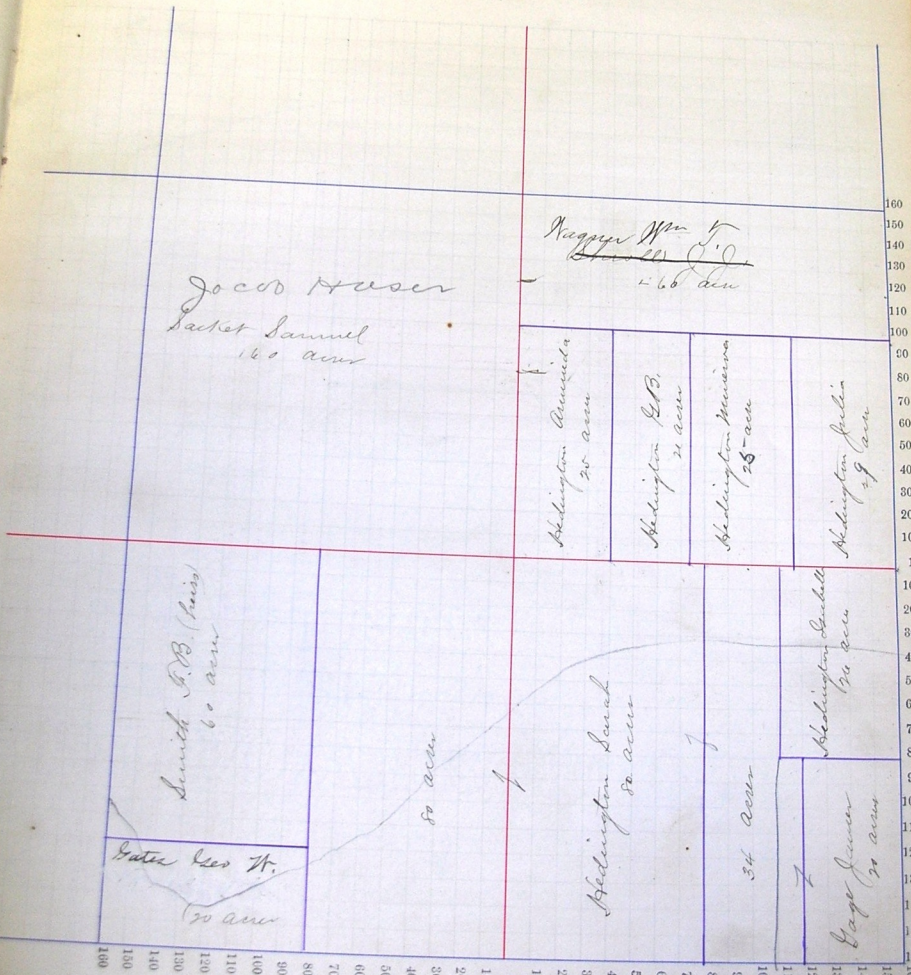 Wagner Wm T
J. J.
160 acres
Jacob Huser
Sacket Samuel
160 acres
Hedington Arminda
25 acres
Hedington G.B.
21 acres
Hedington Minerva
25 acres
Hedington Julia
29 acres
Smith F. B. (heirs)
60 acres
Gates Geo W.
(20 acres
80 acres
Hedington Sarah
80 acres
34 acres
Hedington Isabell
26 acres
Gage James
20 acres
160
150
140
130
120
110
100
90
80
70
60
50
40
30
20
10
160 150 140 130 120 110 100 90 80 70 60 50 40